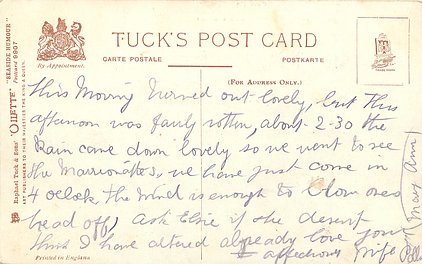 TUCK'S POST CARD
By Appointment.
CARTE POSTALE
POSTKARTE
(FOR ADDRESS ONLY.)
Raphael Tuck & Sons' "OILETTE" "SEASIDE HUMOUR" Postcard 9507
ART PUBLISHERS TO THEIR MAJESTIES THE KING & QUEEN.
This Morning turned out lovely, but this
afternoon was fairly rotten, about 2-30 the
Rain came down lovely so we went to see
the Marrionettes, we have just come in
4 oclock the wind is enough to blow ones
head off, Ask Elsie if she doesent
think I have altered already love from
affectionate Wife
Mary Ann
Printed in England